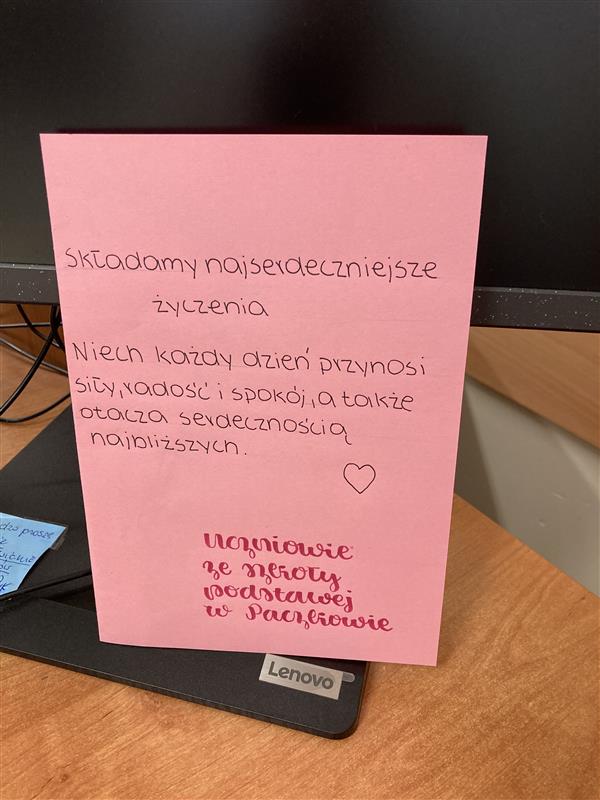 Składamy najserdeczniejsze
życzenia
Niech każdy dzień przynosi
siły, radość i spokój, a także
otacza serdecznością
najbliższych.
Uczniowie
ze szkoły
podstawej
w Paczkowie
Lenovo